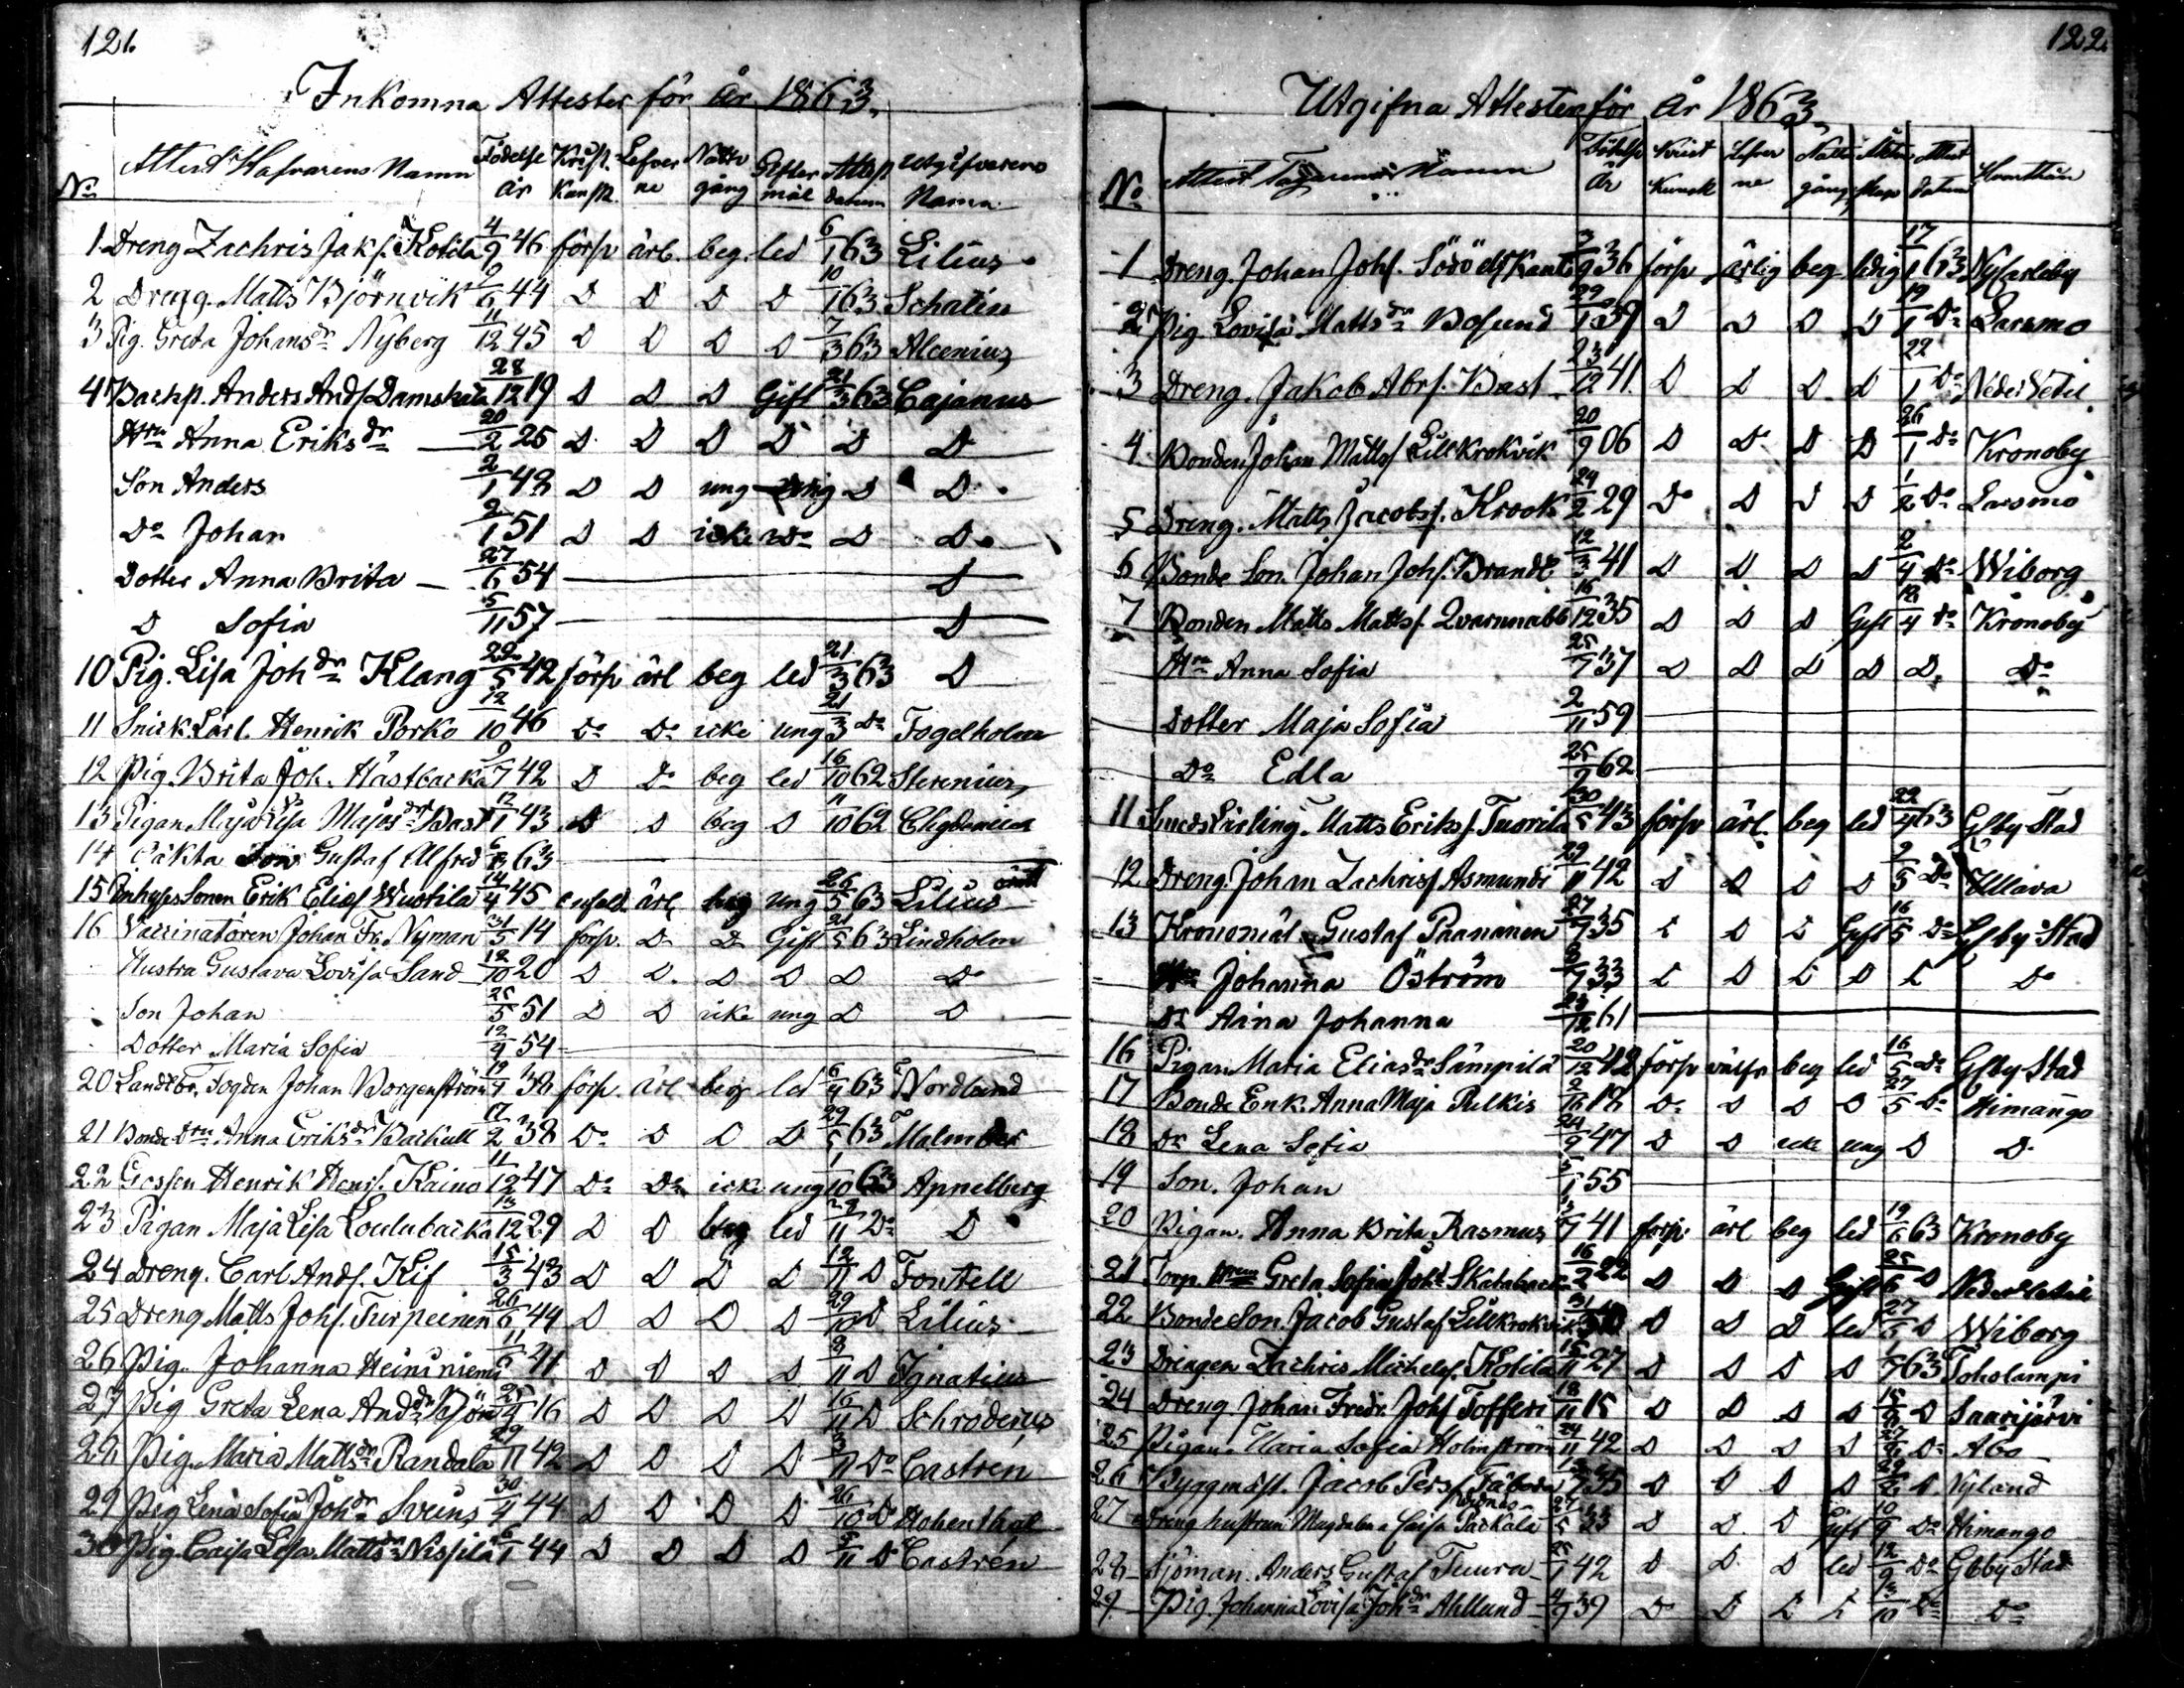 121.
Inkomna Attester för År 1863.
No Attest Hafvarens Namn Födelse År Krist. Kunsk. Lefver ne Nattv gång Gifter mål Attest datum Utgifvarens Namn
1 Dreng Zachris Jaks. Kotila 4/9 46 försv ärl. beg. led 6/1 63 Lilius
2 Dreng. Matts Björnvik 9/6 44 D D D D 10/1 63 Schalin
3 Pig. Greta Johansdr Nyberg 11/12 45 D D D D 7/3 63 Alcenius
4 Backst. Anders Ands. Damskata 28/12 19 D D D Gift 21/3 63 Cajanus
Hru Anna Eriksdr 20/2 25 D D D D D D
Son Anders 2/1 48 D D ung D D
Do Johan 2/1 51 D D icke Do D D
Dotter Anna Brita 27/6 54 D
D Sofia 5/11 57 D
10 Pig. Lisa Johdr Klang 22/5 42 försv ärl beg led 21/3 63 D
11 Snick Lärl. Henrik Porko 12/10 46 Do Do icke ung 21/3 Do Fogelholm
12 Pig. Brita Joh. Hästbacka 9/7 42 D Do beg led 16/10 62 Stenius
13 Pigan Maja Lisa Majasdr Bast 12/1 43 D D beg D 11/10 62
14 Oäkta Son Gustaf Alfred 63
15 Inhyses Sonen Erik Elias Wuotila 14/4 45 enfald. ärl beg ung 26/5 63 Lilius
16 Vaccinatören Johan Fr. Nyman 31/5 14 försv. D D Gift 21/5 63 Lindholm
Hustra Gustava Lovisa Sand 12/10 20 D D D D D Do
Son Johan 25/5 51 D D icke ung D D
Dotter Maria Sofia 12/9 54
20 Landtbr. Fogden Johan Borgenström 19/4 38 försv. ärl beg led 6/4 63 Nordlund
21 Bonde Dru Anna Eriksdr Backull 17/2 38 Do D D D 29/5 63 Malmber
22 Gossen Henrik Hens. Kaino 11/12 47 Do Do icke ung 1/10 63 Appelberg
23 Pigan Maja Lisa Loulubacka 13/12 29 D D beg led 28/11 Do D
24 Dreng. Carl Ands. Kif 15/3 43 D D D D 12/11 D Fontell
25 Dreng Matts Johs. Turpeinen 26/6 44 D D D D 29/10 D Lilius
26 Pig. Johanna Heininiemi 11/5 41 D D D D 8/11 D Ignatius
27 Pig Greta Lena Anddr Björn 25/4 16 D D D D 16/11 D Schroderus
28 Pig. Maria Mattsdr Randala 29/11 42 D D D D 3/11 Do Castrén
29 Pig Lena Sofia Johdr Svens 30/4 44 D D D D 26/10 D Hohenthal
30 Pig. Caisa Lisa Mattsdr Nissilä 6/1 44 D D D D 5/11 D Castrén
122.
Utgifna Attester för År 1863.
No Attest Tagarens Namn Födelse År Krist Kunsk Lefver ne Natt gång Attest datum Hvarthän
1 Dreng. Johan Johs. Södö 3/9 36 försv ärlig beg ledig 17/1 63 Nykarleby
2 Pig. Lovisa Mattsdr Bosund 29/1 39 D D D D 19/1 Do Larsmo
3 Dreng. Jakob Abrs. Bast 23/12 41 D D D D 22/1 Do Neder Vetil
4 Bonden Johan Matts Lillkrokvik 20/9 06 D Do D D 26/1 Do Kronoby
5 Dreng. Matts Jacobs. Krook 24/2 29 Do D D D 1/2 Do Larsmo
6 Bonde Son. Johan Johs. Brandt 12/3 41 D D D D 2/4 Do Wiborg
7 Bonden Matts Matts. Qvarnnabb 16/12 35 D D D Gift 12/4 Do Kronoby
Hru Anna Sofia 25/7 37 D D D D D Do
Dotter Maja Sofia 2/11 59
Do Edla 25/2 62
11 Smeds Lärling. Matts Eriks. Tuorila 30/5 43 försv ärl. beg led 22/4 63 Glby Stad
12 Dreng. Johan Zachriss Asmundi 29/11 42 D D D D 2/5 Do Ullava
13 Krononiäl Gustaf Paananen 27/7 35 D D D Gift 16/5 Do Glby Stad
Hru Johanna Öström 33 D D D D D Do
Dr Aina Johanna 61
16 Pigan Maria Eliasdr Sämpilä 20/12 42 försv välfr beg led 16/5 Do Glby Stad
17 Bonde Enk. Anna Maja Pulkis 18 Do D D D 27/5 Do Himango
18 Dr Lena Sofia 24/9 47 D D icke ung D D
19 Son. Johan 55
20 Pigan. Anna Brita Rasmus 41 försv. ärl beg led 19/6 63 Kronoby
21 Torp. Greta Sofia Johdr Skataback 16/2 22 D D D Gift 25/6 D Neder Vetil
22 Bonde Son. Jacob Gustaf Lillkrokvik D D D led 27/6 D Wiborg
23 Drengen Zachris Michels. Kotila 15/11 27 D D D D 63 Toholampi
24 Dreng Johan Fredr. Johs Tofferi 18/11 15 D D D D D Saarijärvi
25 Pigan. Maria Sofia Holmström 24/11 42 D D D D Do Åbo
26 Byggmäst. Jacob Pers. Fäboda D D D D D Nyland
27 Dreng hustrun Magdalena Caisa Packala 33 D D D Gift 10/9 Do Himango
28 Sjöman. Anders Gustaf Tuura 42 D D D led 12/9 Do Glby Stad
29. Pig. Johanna Lovisa Johdr Ahllund 4/9 39 Do D D D 3/10 Do Do